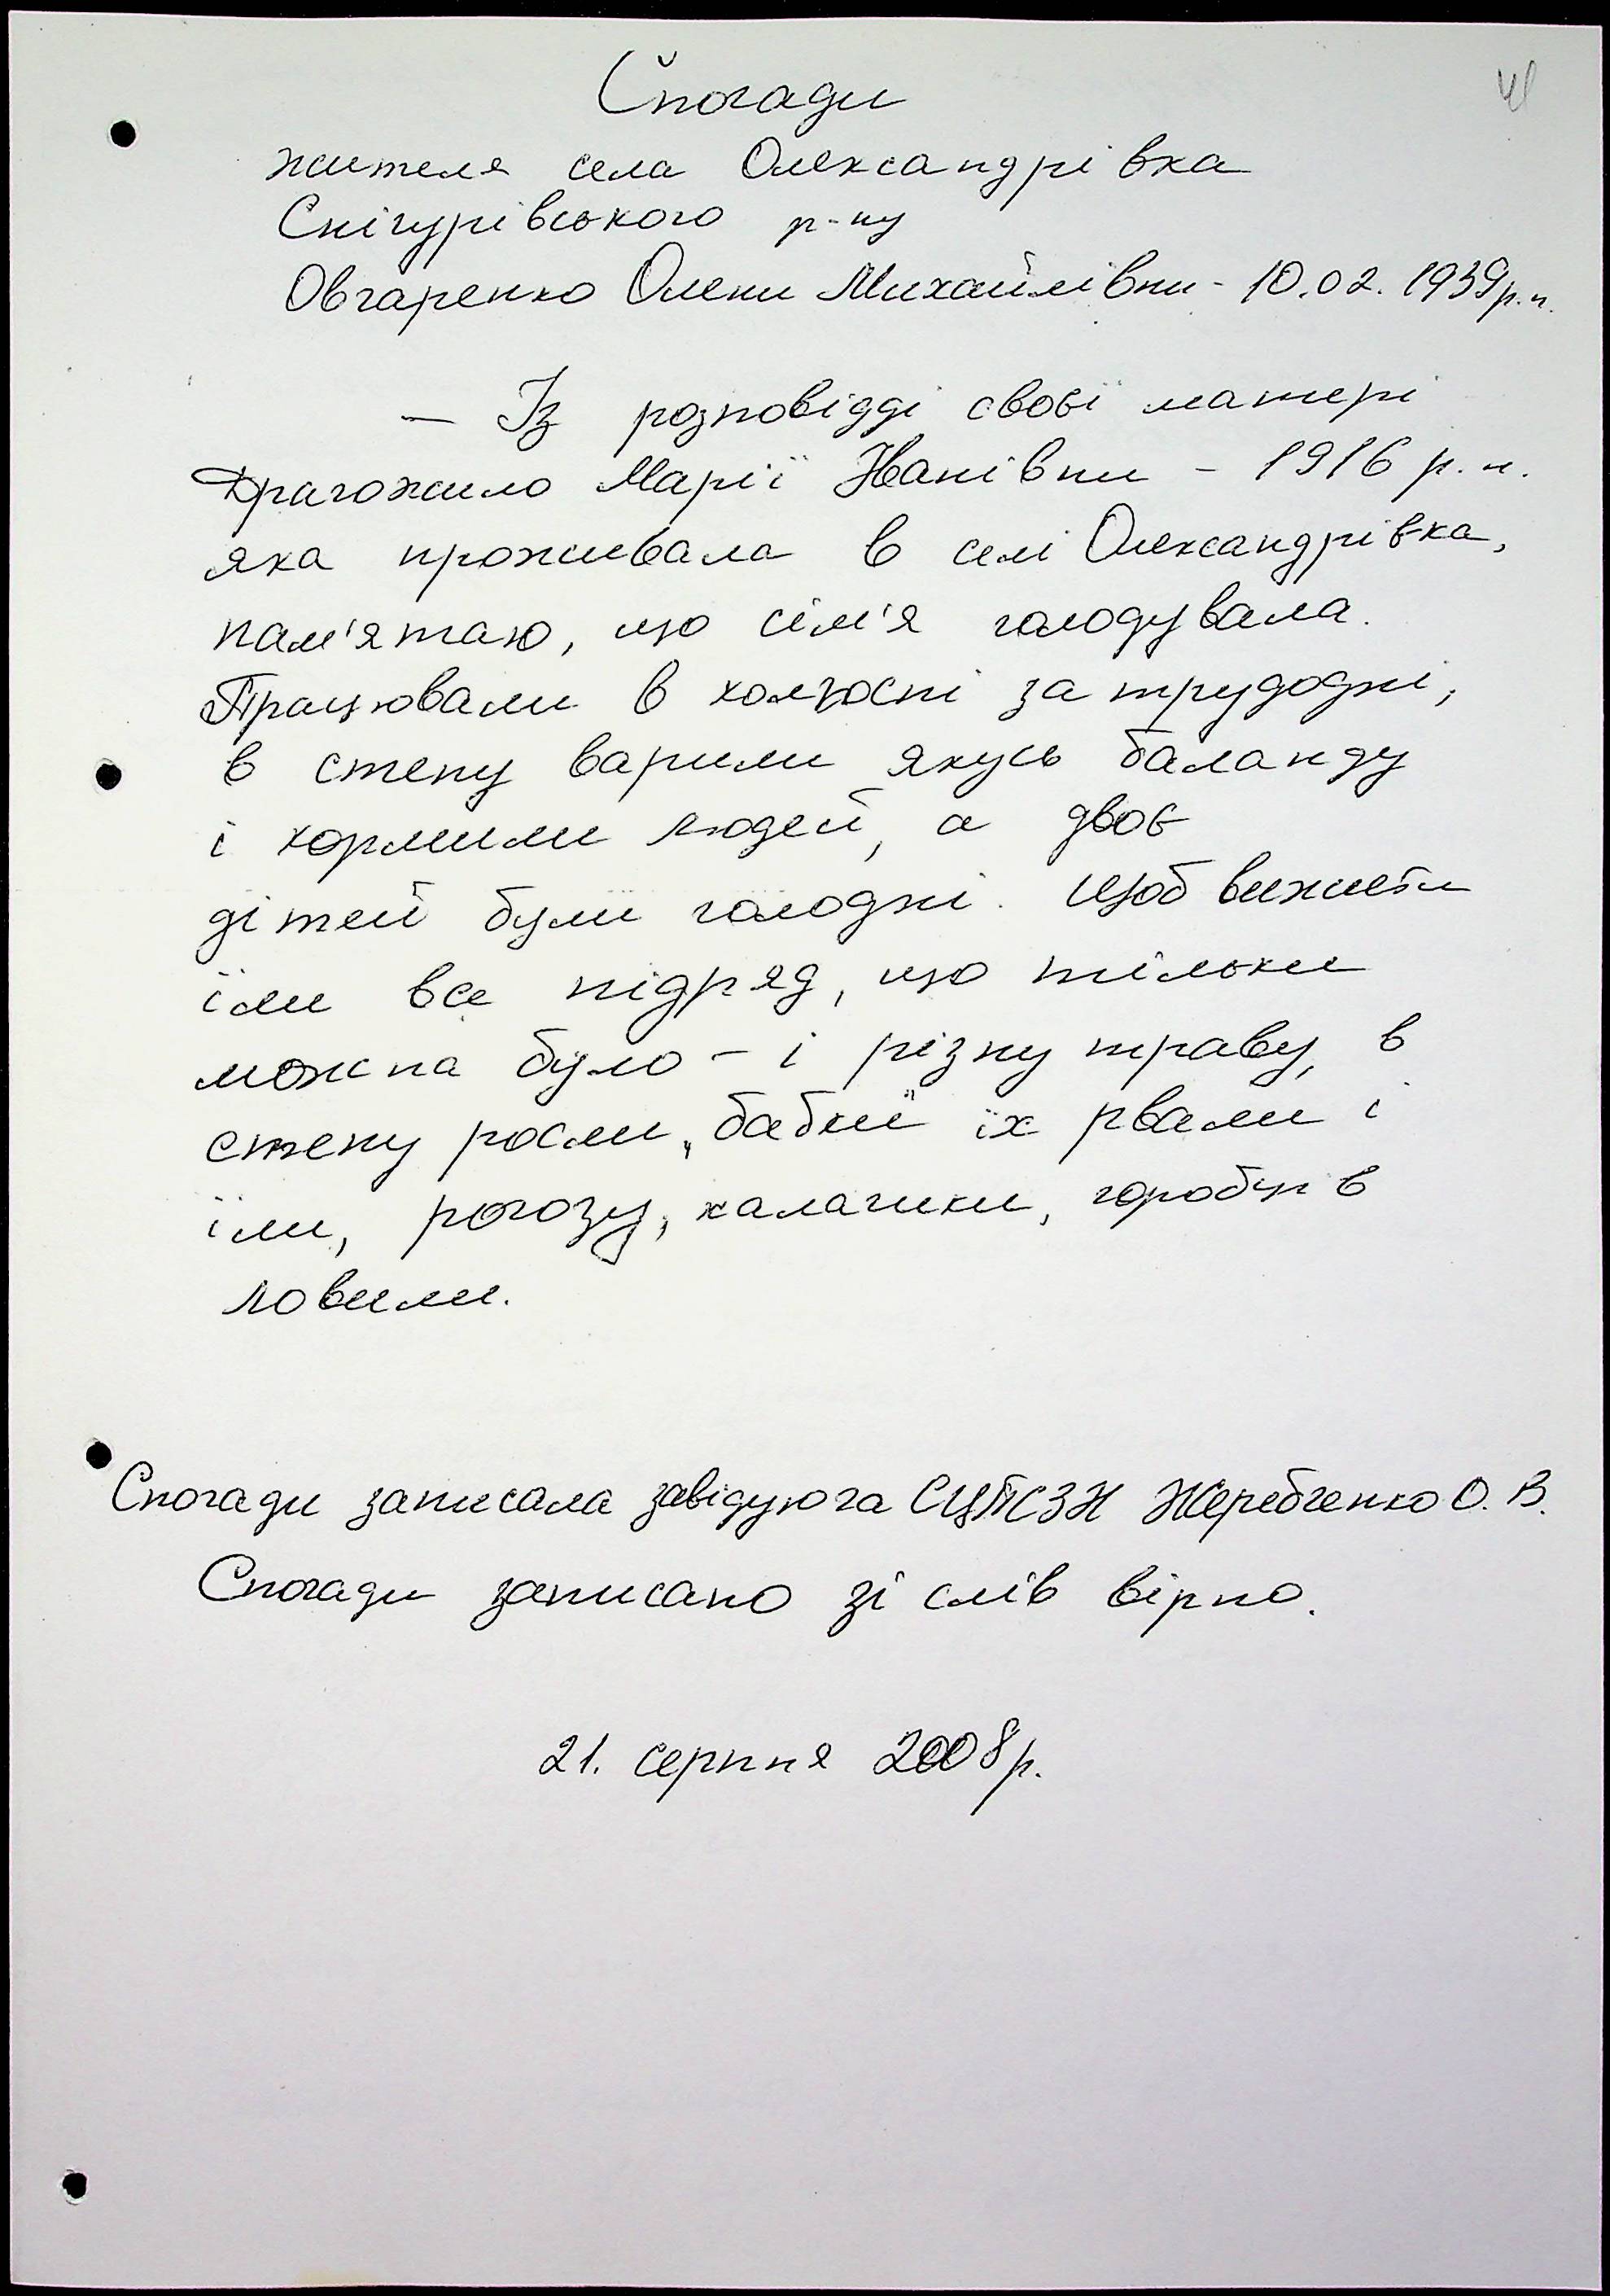 Спогади
жителя села Олександрівка
Снігурівського р-ну
Овчаренко Олени Михайлівни - 10.02.1939р.н.
— Із розповідді своєї матері
Драгожило Марії Іванівни - 1916 р.н.
яка проживала в селі Олександрівка,
пам'ятаю, що сім'я голодувала.
Працювали в колгоспі за трудодні,
в степу варили якусь баланду
і кормили людей, а двоє
дітей були голодні. Щоб вижити
їли все підряд, що тільки
можна було - і різну траву, в
степу росли „бабки" їх рвали і
їли, рогозу, калачики, горобців
ловили.
Спогади записала завідуюча СЦПСЗН Жеребченко О. В.
Спогади записано зі слів вірно.
21. серпня 2008р.